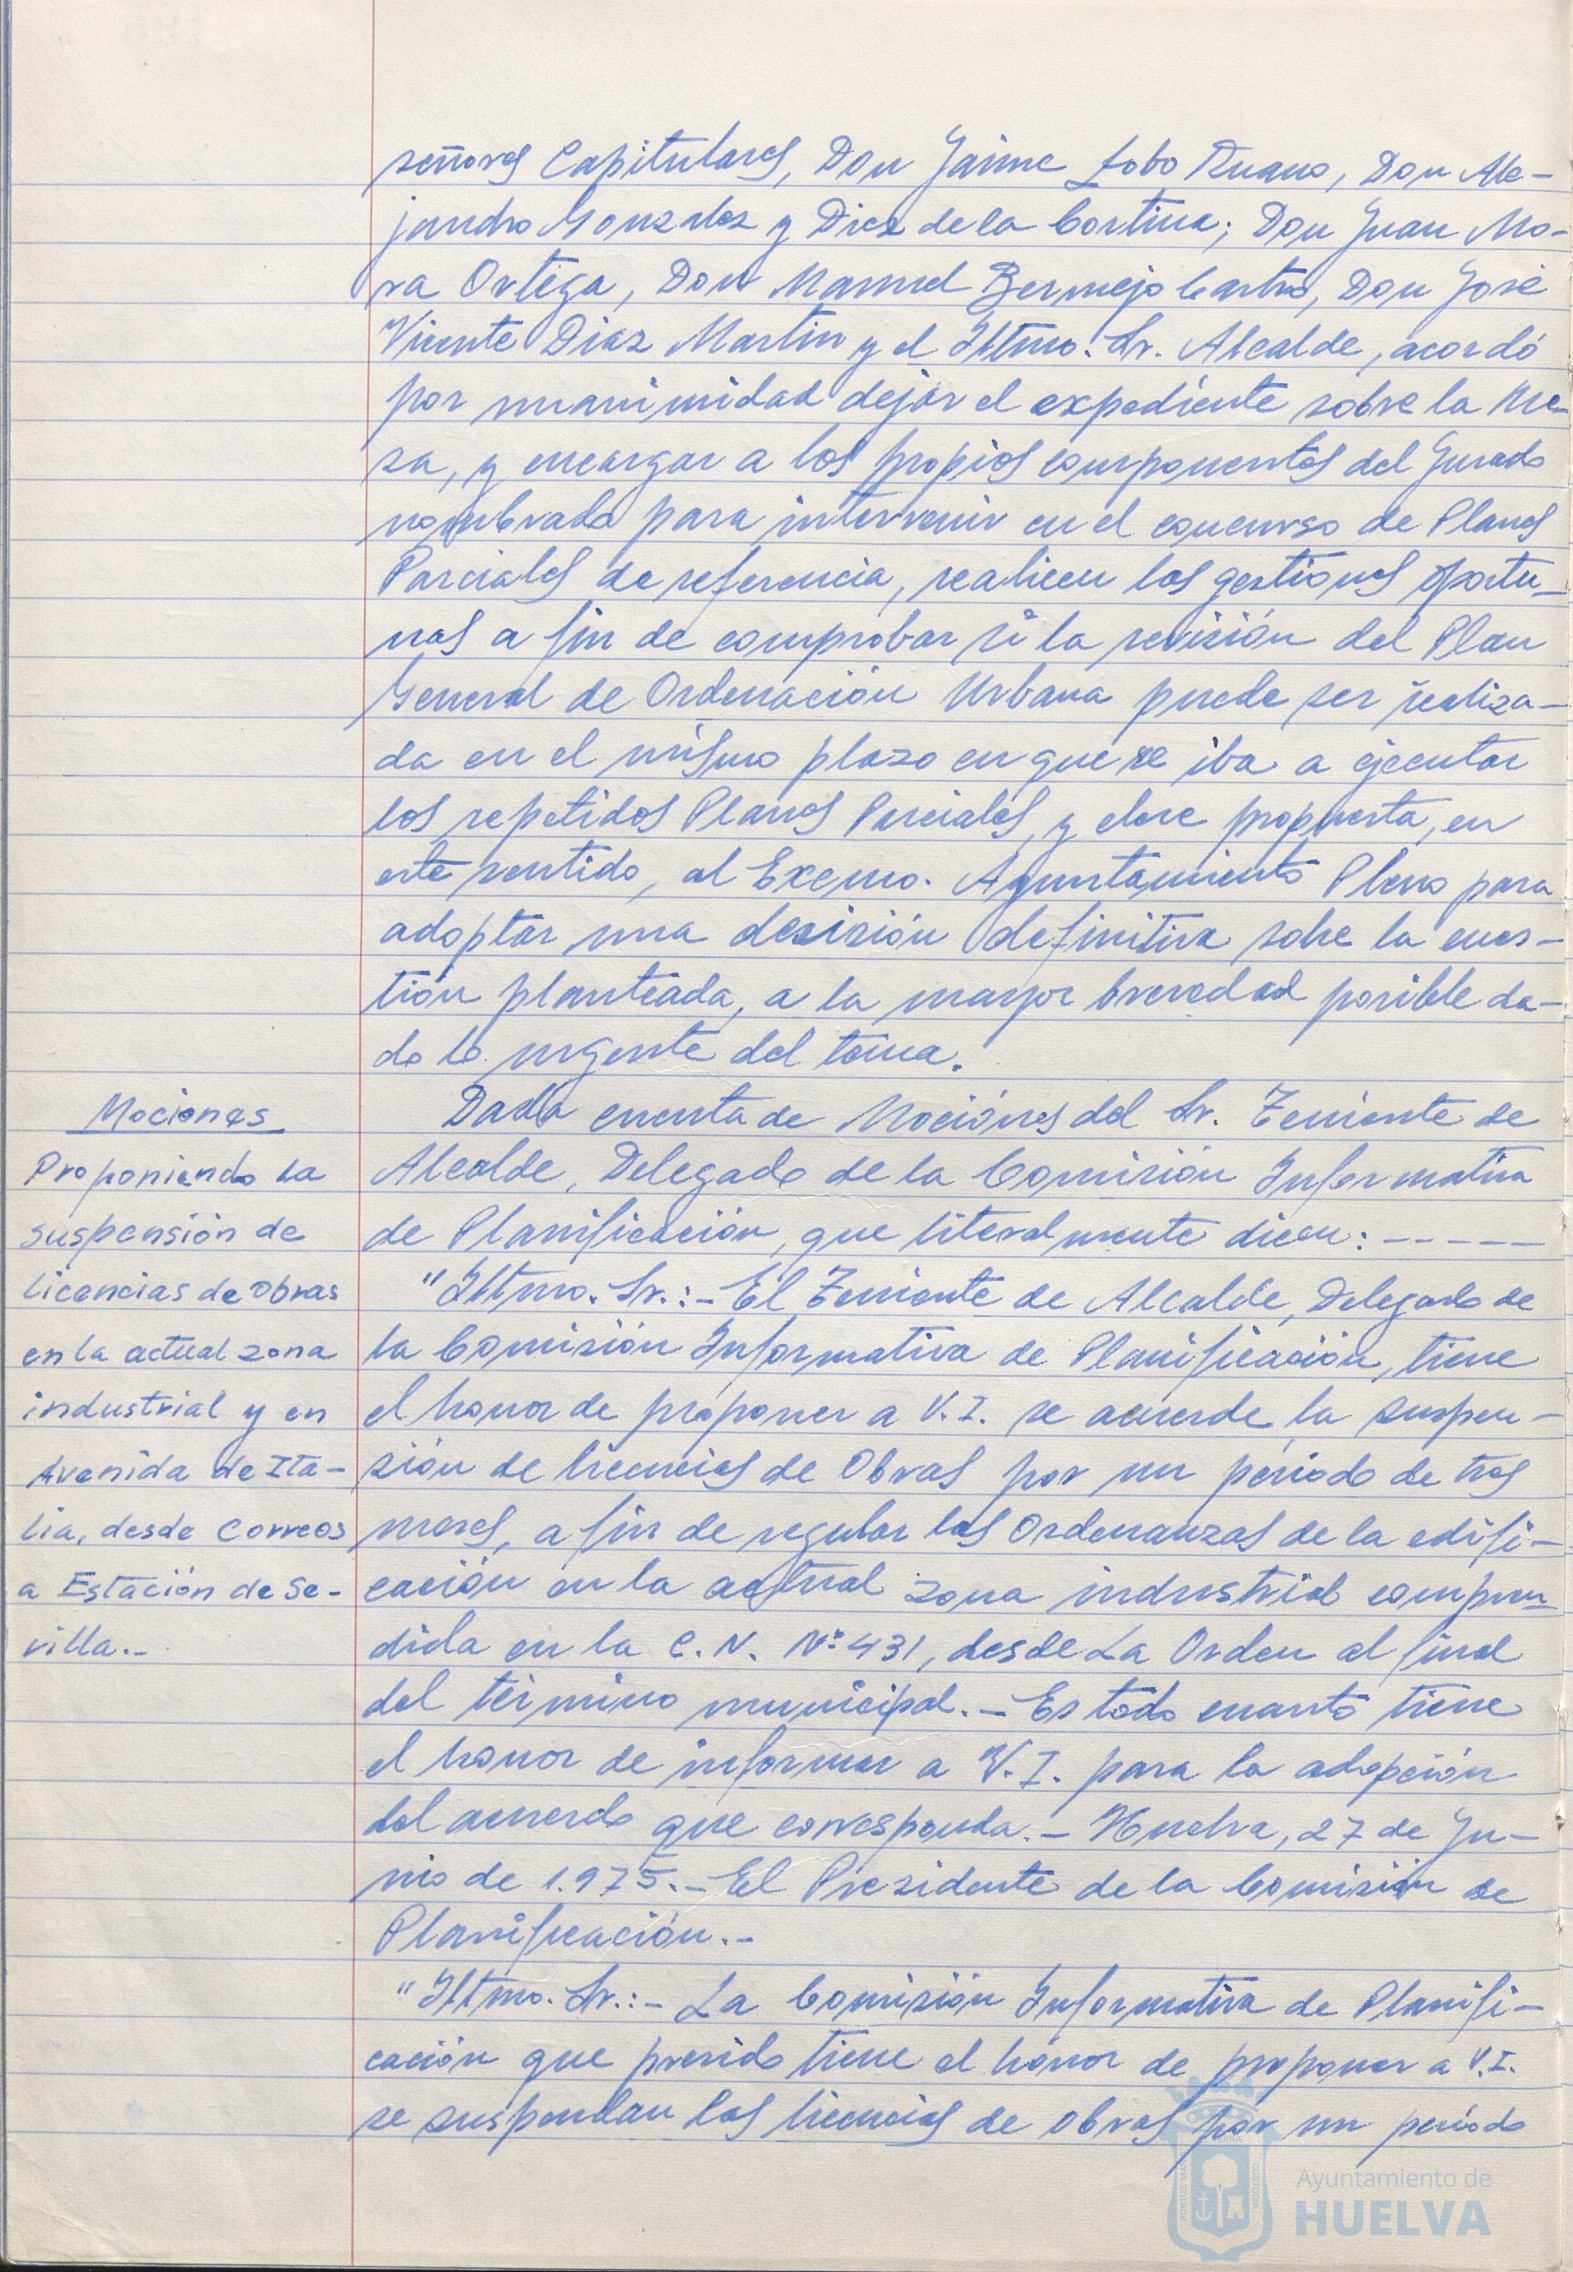 señores Capitulares, Don Jaime Lobo Ruano, Don Ale-
jandro González y Diez de la Cortina; Don Juan Mo-
ra Ortega, Don Manuel Bermejo Castro, Don José
Vicente Díaz Martín y el Iltmo. Sr. Alcalde, acordó
por unanimidad dejar el expediente sobre la Me-
sa, y encargar a los propios componentes del Jurado
nombrado para intervenir en el concurso de Planes
Parciales de referencia, realicen las gestiones oportu-
nas a fin de comprobar si la revisión del Plan
General de Ordenación Urbana puede ser realiza-
da en el mismo plazo en que se iba a ejecutar
los repetidos Planes Parciales, y eleve propuesta, en
este sentido, al Excmo. Ayuntamiento Pleno para
adoptar una decisión definitiva sobre la cues-
tión planteada, a la mayor brevedad posible da-
do lo urgente del tema.
Mociones
Proponiendo la
suspensión de
licencias de obras
en la actual zona
industrial y en
Avenida de Ita-
lia, desde Correos
a Estación de Se-
villa.-
Dada cuenta de Mociones del Sr. Teniente de
Alcalde, Delegado de la Comisión Informativa
de Planificación, que literalmente dicen: -----
"Iltmo. Sr.:- El Teniente de Alcalde, Delegado de
la Comisión Informativa de Planificación, tiene
el honor de proponer a V.I. se acuerde la suspen-
sión de licencias de Obras por un período de tres
meses, a fin de regular las Ordenanzas de la edifi-
cación en la actual zona industrial compren-
dida en la C.N. Nº 431, desde La Orden al final
del término municipal.- Es todo cuanto tiene
el honor de informar a V.I. para la adopción
del acuerdo que corresponda.- Huelva, 27 de Ju-
nio de 1.975.- El Presidente de la Comisión de
Planificación.-
"Iltmo. Sr.:- La Comisión Informativa de Planifi-
cación que presido tiene el honor de proponer a V.I.
se suspendan las licencias de obras por un período
Ayuntamiento de
HUELVA